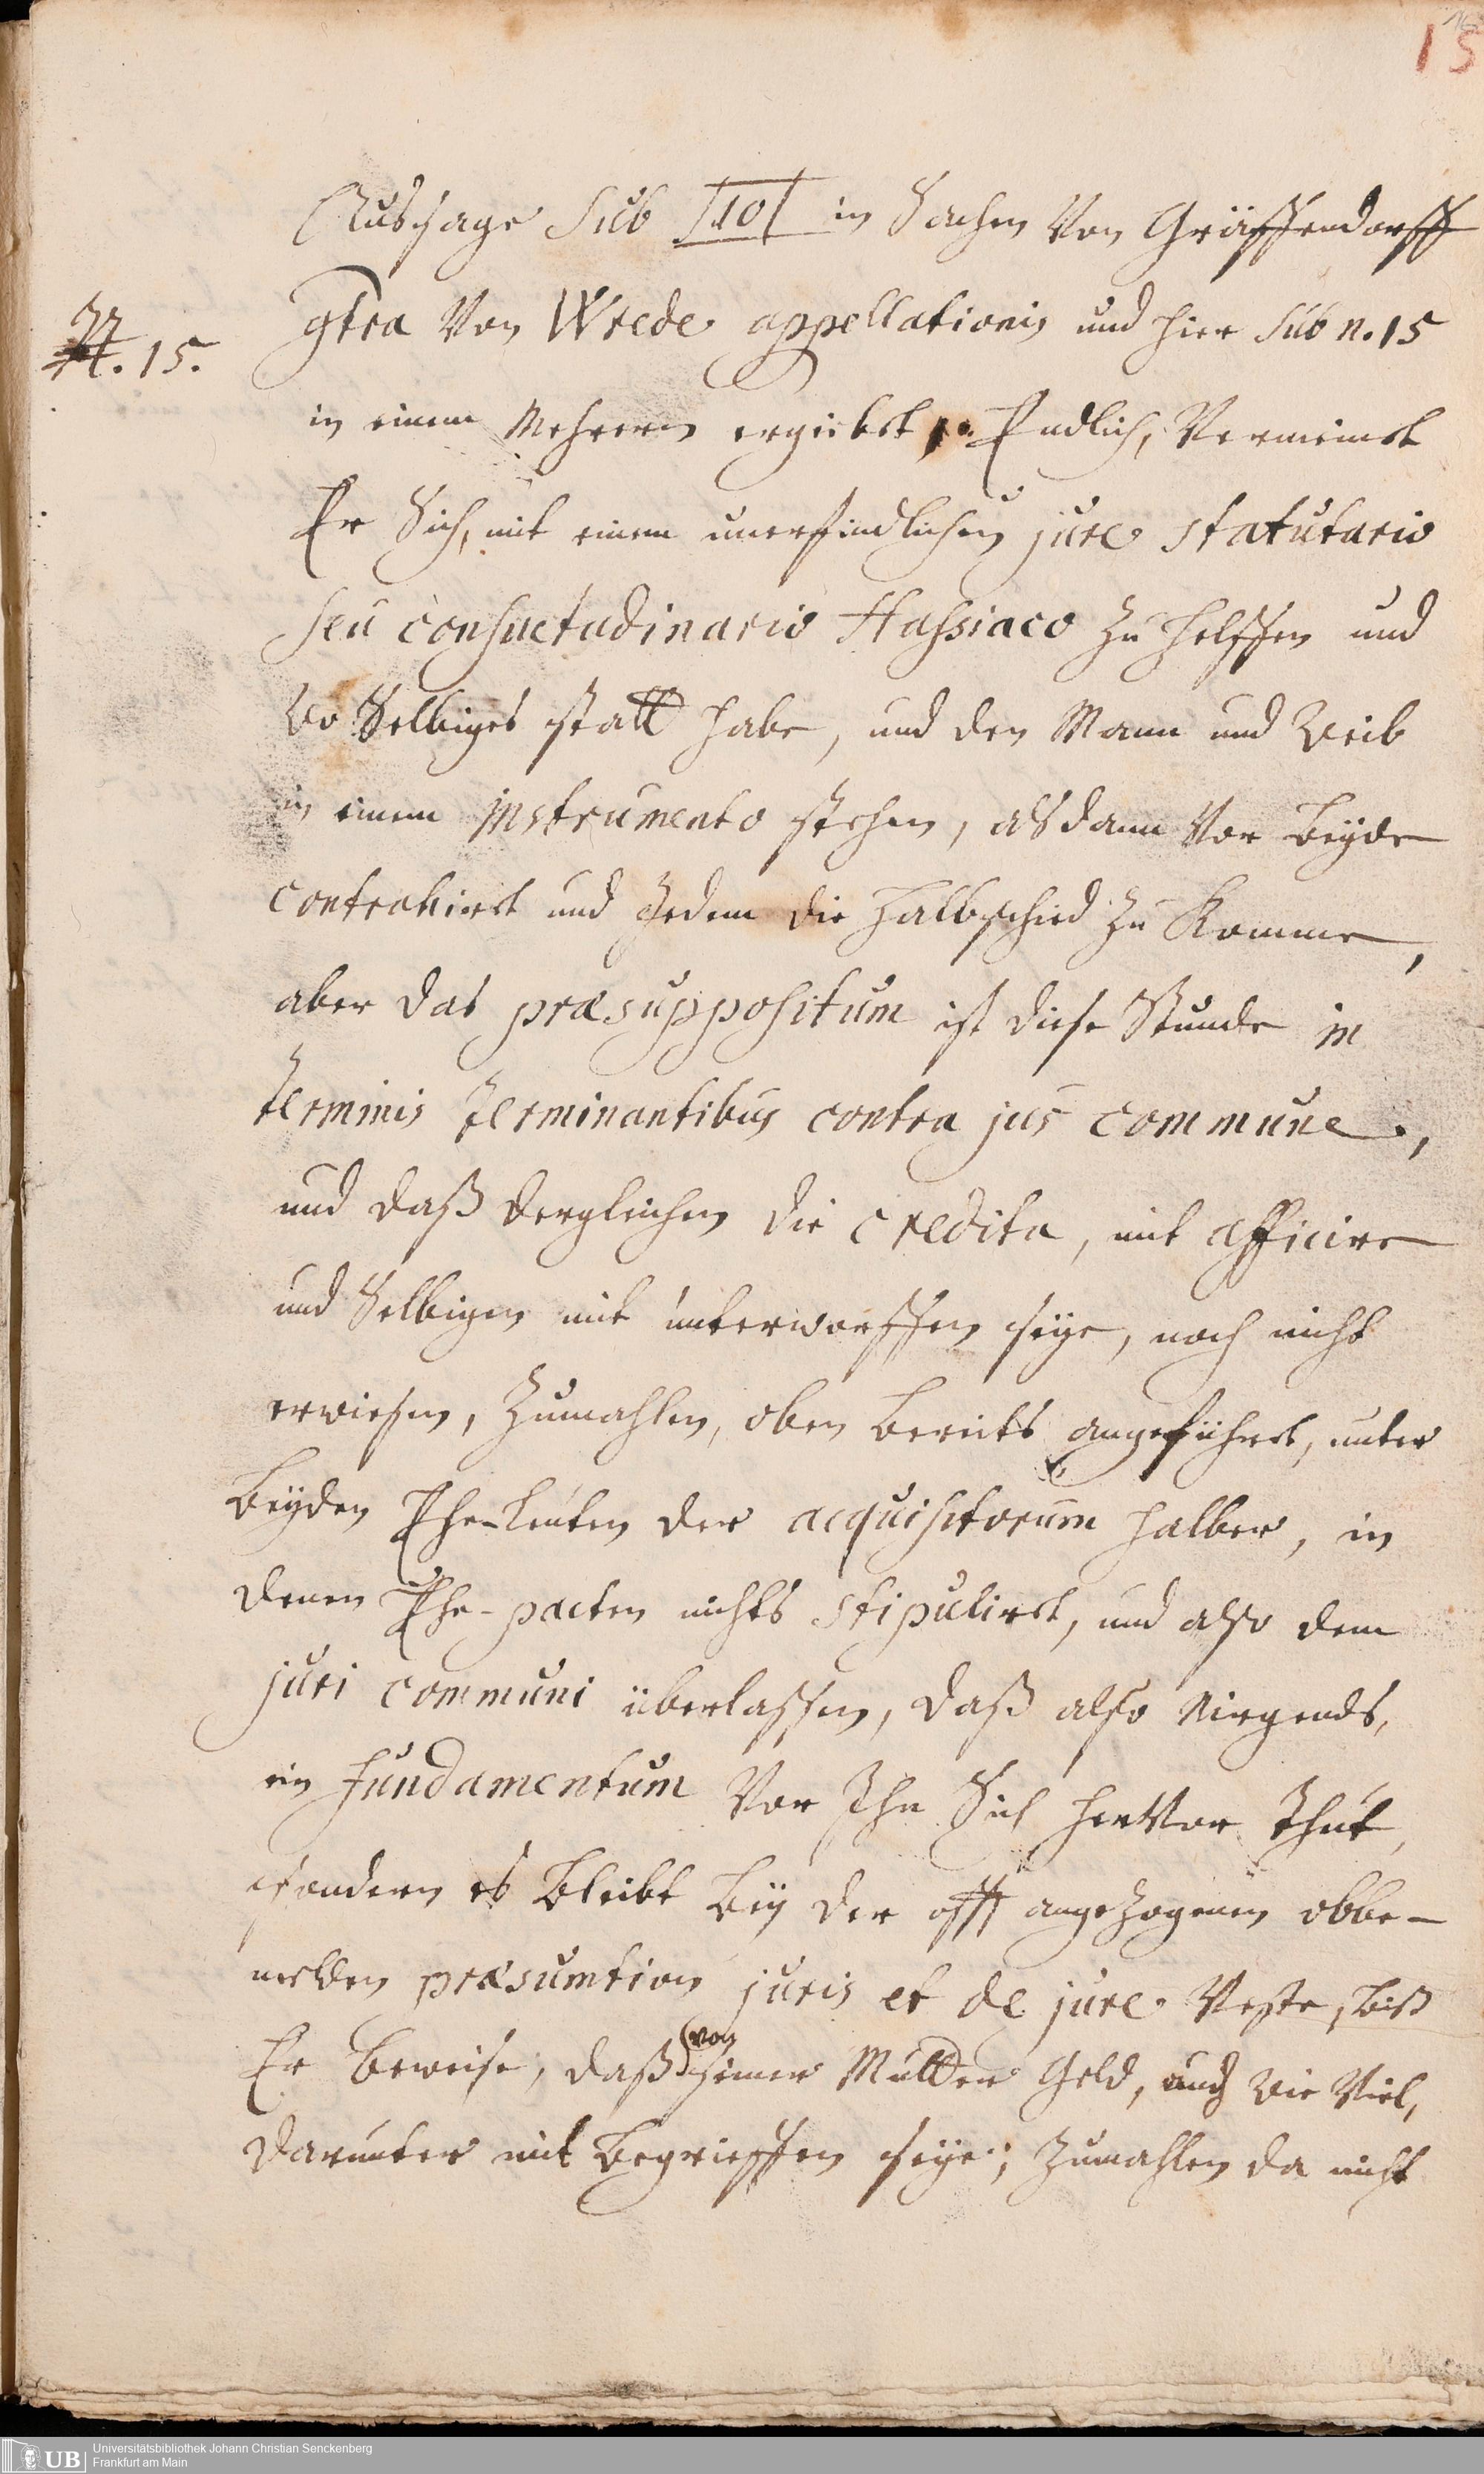 15
Außsage sub [10] in Sachen Von Gräffendorff
gtra Von Wrede appellationis und hier sub n. 15
N. 15.
in einem Mehrern ergiebet, Endlich, Vermeinet
Er Sich, mit einem unerfindlichen jure statutario
seu consuetudinario Hassiaco zu helffen und
wo Selbiges statt habe, und den Mann und Weib
in einem instrumento stehen, alsdann Vor beyde
contrahiret und Jedem die Halbschied zu Komme,
aber das præsuppositum ist diese Stunde in
terminis terminantibus contra jus commune,
und daß dergleichen die credita, mit afficire
und Selbigen mit unterworffen seye, noch nicht
erwiesen, Zumahlen, oben bereits angeführet, unter
beyden Ehe-Leuten der acquisitorum halber, in
denen Ehe-pacten nichts stipuliret, und also dem
juri communi überlassen, daß also nirgends,
ein fundamentum Vor Ihn Sich herVor thut,
sondern es bleibt bey der offt angezogenen obbe-
melden præsumtion juris et de jure Veste, biß
Er beweise, daß von seiner Mutter Geld, und wie Viel,
darunter mit begrieffen seye; Zumahlen da nicht
Universitätsbibliothek Johann Christian Senckenberg
UB
Frankfurt am Main